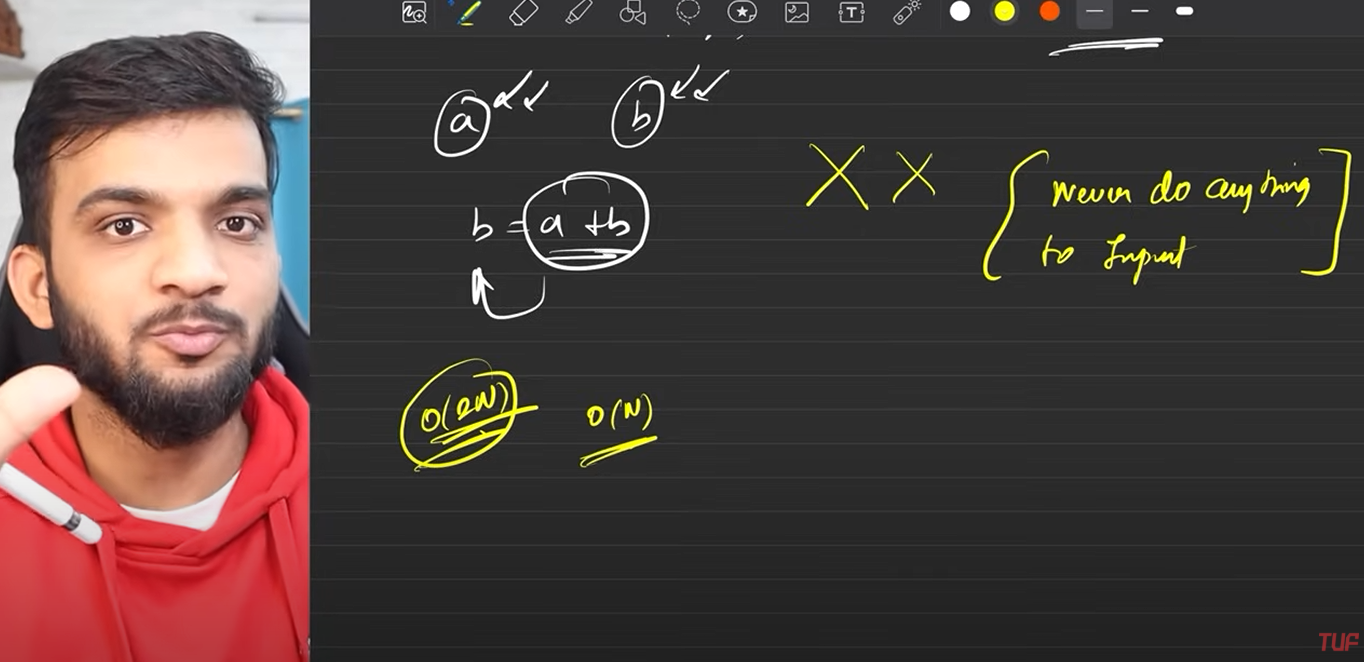 a
b
b = a + b
X X
Never do anything
to Input
O(2N)
O(N)
T
TUF